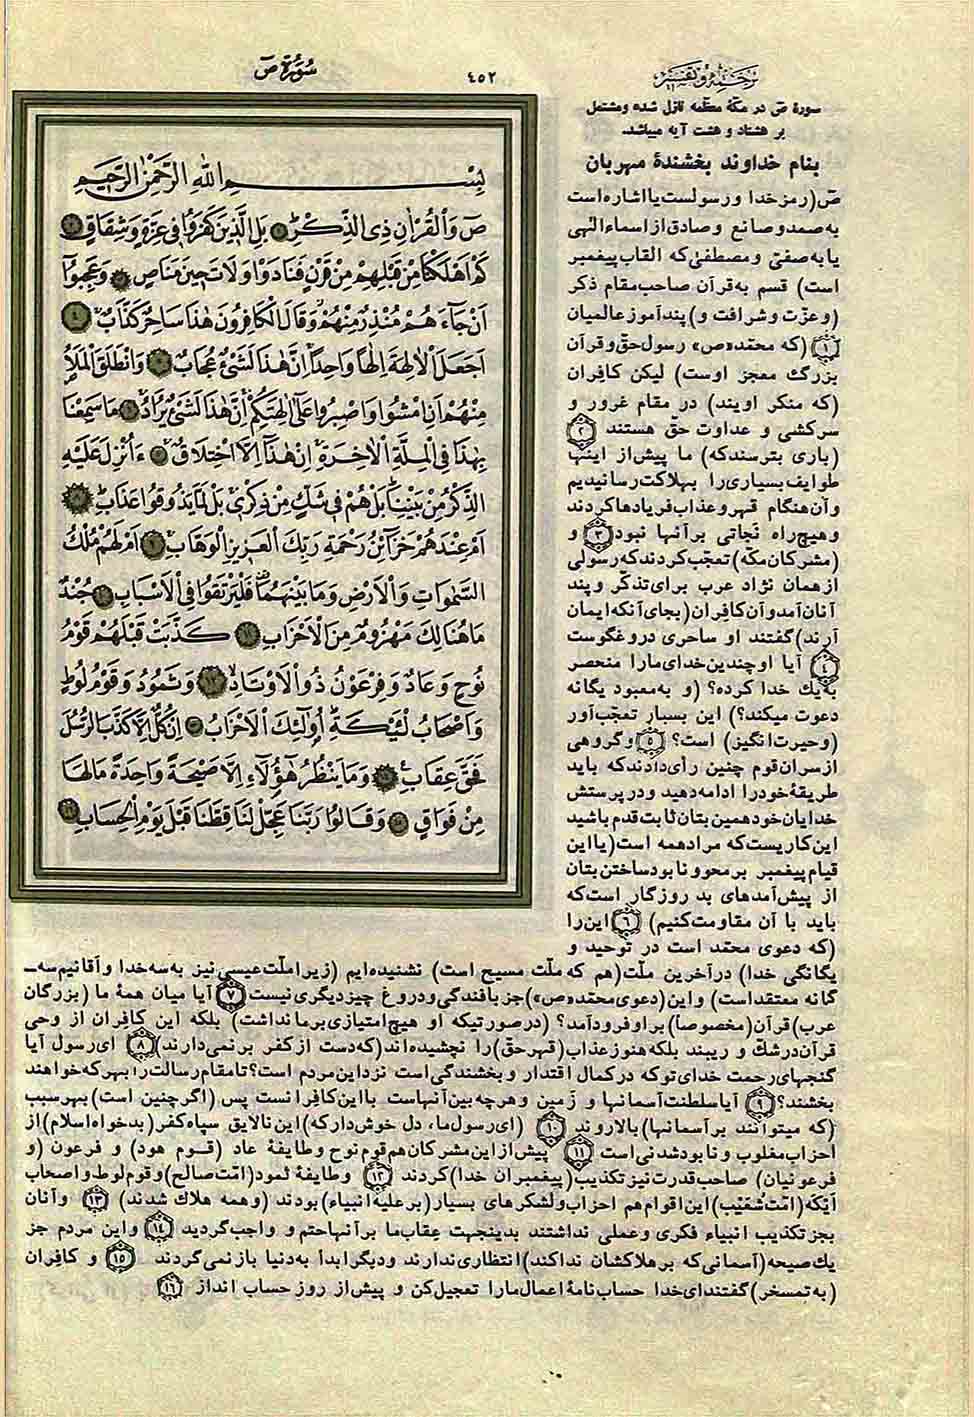 سورة ص
٤٥٢
ترجمه و تفسیر
سورهٔ صٓ در مکّهٔ معظّمه نازل شده و مشتمل
بر هشتاد و هشت آیه میباشد.
بنام خداوند بخشندهٔ مهربان
صٓ (رمز خدا و رسولست یا اشاره است
به صمد و صانع و صادق از اسماء الٰهی
یا به صفیّ و مصطفیٰ که القاب پیغمبر
است) قسم به قرآن صاحب مقام ذکر
(و عزّت و شرافت و) پند آموز عالمیان
۱ (که محمّد «ص» رسول حقّ و قرآن
بزرگ معجز اوست) لیکن کافران
(که منکر اویند) در مقام غرور و
سرکشی و عداوت حق هستند ۲
(باری بترسند که) ما پیش از اینها
طوایف بسیاری را بهلاکت رسانیدیم
و آن هنگام قهر و عذاب فریادها کردند
و هیچ راه نجاتی بر آنها نبود ۳ و
(مشرکان مکّه) تعجّب کردند که رسولی
از همان نژاد عرب برای تذکّر و پند
آنان آمد و آن کافران (بجای آنکه ایمان
آرند) گفتند او ساحری دروغگوست
٤ آیا او چندین خدای ما را منحصر
به یك خدا کرده؟ (و به معبود یگانه
دعوت میکند؟) این بسیار تعجّب آور
(و حیرت انگیز) است؟ ۵ و گروهی
از سران قوم چنین رأی دادند که باید
طریقهٔ خود را ادامه دهید و در پرستش
خدایان خود همین بتان ثابت قدم باشید
این کاریست که مراد همه است (یا این
قیام پیغمبر بر محو و نابود ساختن بتان
از پیش آمدهای بد روزگار است که
باید با آن مقاومت کنیم) ٦ این را
(که دعوی محمّد است در توحید و
یگانگی خدا) در آخرین ملّت (هم که ملّت مسیح است) نشنیده ایم (زیرا ملّت عیسی نیز به سه خدا و أقانیم سه ـ
گانه معتقد است) و این (دعوی محمّد «ص») جز بافندگی و دروغ چیز دیگری نیست ۷ آیا میان همهٔ ما (بزرگان
عرب) قرآن (مخصوصاً) بر او فرود آمد؟ (در صورتیکه او هیچ امتیازی بر ما نداشت) بلکه این کافران از وحی
قرآن در شك و ریبند بلکه هنوز عذاب (قهر حقّ) را نچشیده اند (که دست از کفر بر نمی دارند) ۸ ای رسول آیا
گنجهای رحمت خدای تو که در کمال اقتدار و بخشندگی است نزد این مردم است؟ تا مقام رسالت را بهر که خواهند
بخشند؟ ۹ آیا سلطنت آسمانها و زمین و هر چه بین آنهاست با این کافرانست پس (اگر چنین است) بهر سبب
(که میتوانند بر آسمانها) بالا روند ۱۰ (ای رسول ما، دل خوش دار که) این نالایق سپاه کفر (بدخواه اسلام) از
احزاب مغلوب و نابود شدنی است ۱۱ پیش از این مشرکان هم قوم نوح و طایفهٔ عاد (قوم هود) و فرعون (و
فرعونیان) صاحب قدرت نیز تکذیب (پیغمبران خدا) کردند ۱۲ و طایفهٔ ثمود (امّت صالح) و قوم لوط و اصحاب
أیکه (امّت شُعَیب) این اقوام هم احزاب و لشکرهای بسیار (بر علیهٔ انبیاء) بودند (و همه هلاك شدند) ۱۳ و آنان
بجز تکذیب انبیاء فکری و عملی نداشتند بدینجهت عِقاب ما بر آنها حتم و واجب گردید ۱٤ و این مردم جز
یك صیحه (آسمانی که بر هلاکشان ندا کند) انتظاری ندارند و دیگر ابداً به دنیا باز نمی گردند ۱۵ و کافران
(به تمسخر) گفتند ای خدا حساب نامهٔ اعمال ما را تعجیل کن و پیش از روز حساب انداز ۱٦
بِسْمِ اللّٰهِ الرَّحْمٰنِ الرَّحِيمِ
صٓ وَالْقُرْاٰنِ ذِي الذِّكْرِ ١ بَلِ الَّذِينَ كَفَرُوا فِي عِزَّةٍ وَشِقَاقٍ ٢
كَمْ اَهْلَكْنَا مِنْ قَبْلِهِمْ مِنْ قَرْنٍ فَنَادَوْا وَلَاتَ حِينَ مَنَاصٍ ٣ وَعَجِبُوا
اَنْ جَاءَهُمْ مُنْذِرٌ مِنْهُمْ وَقَالَ الْكَافِرُونَ هٰذَا سَاحِرٌ كَذَّابٌ ٤
اَجَعَلَ الْاٰلِهَةَ اِلٰهًا وَاحِدًا اِنَّ هٰذَا لَشَيْءٌ عُجَابٌ ٥ وَانْطَلَقَ الْمَلَاُ
مِنْهُمْ اَنِ امْشُوا وَاصْبِرُوا عَلٰى اٰلِهَتِكُمْ اِنَّ هٰذَا لَشَيْءٌ يُرَادُ ٦ مَا سَمِعْنَا
بِهٰذَا فِي الْمِلَّةِ الْاٰخِرَةِ اِنْ هٰذَا اِلَّا اخْتِلَاقٌ ٧ ءَاُنْزِلَ عَلَيْهِ
الذِّكْرُ مِنْ بَيْنِنَا بَلْ هُمْ فِي شَكٍّ مِنْ ذِكْرِي بَلْ لَمَّا يَذُوقُوا عَذَابِ ٨
اَمْ عِنْدَهُمْ خَزَائِنُ رَحْمَةِ رَبِّكَ الْعَزِيزِ الْوَهَّابِ ٩ اَمْ لَهُمْ مُلْكُ
السَّمٰوَاتِ وَالْاَرْضِ وَمَا بَيْنَهُمَا فَلْيَرْتَقُوا فِي الْاَسْبَابِ ١٠ جُنْدٌ
مَا هُنَالِكَ مَهْزُومٌ مِنَ الْاَحْزَابِ ١١ كَذَّبَتْ قَبْلَهُمْ قَوْمُ
نُوحٍ وَعَادٌ وَفِرْعَوْنُ ذُو الْاَوْتَادِ ١٢ وَثَمُودُ وَقَوْمُ لُوطٍ
وَاَصْحَابُ لْـَٔيْكَةِ اُولٰئِكَ الْاَحْزَابُ ١٣ اِنْ كُلٌّ اِلَّا كَذَّبَ الرُّسُلَ
فَحَقَّ عِقَابِ ١٤ وَمَا يَنْظُرُ هٰؤُلَاءِ اِلَّا صَيْحَةً وَاحِدَةً مَا لَهَا
مِنْ فَوَاقٍ ١٥ وَقَالُوا رَبَّنَا عَجِّلْ لَنَا قِطَّنَا قَبْلَ يَوْمِ الْحِسَابِ ١٦